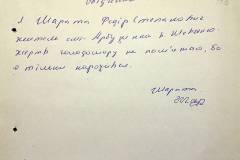 Я Шарата Федір Степанович
житель смт Арбузинка в. Шевченко
жертв голодомору не пам'ятаю, бо
я тільки народився.
Шарата